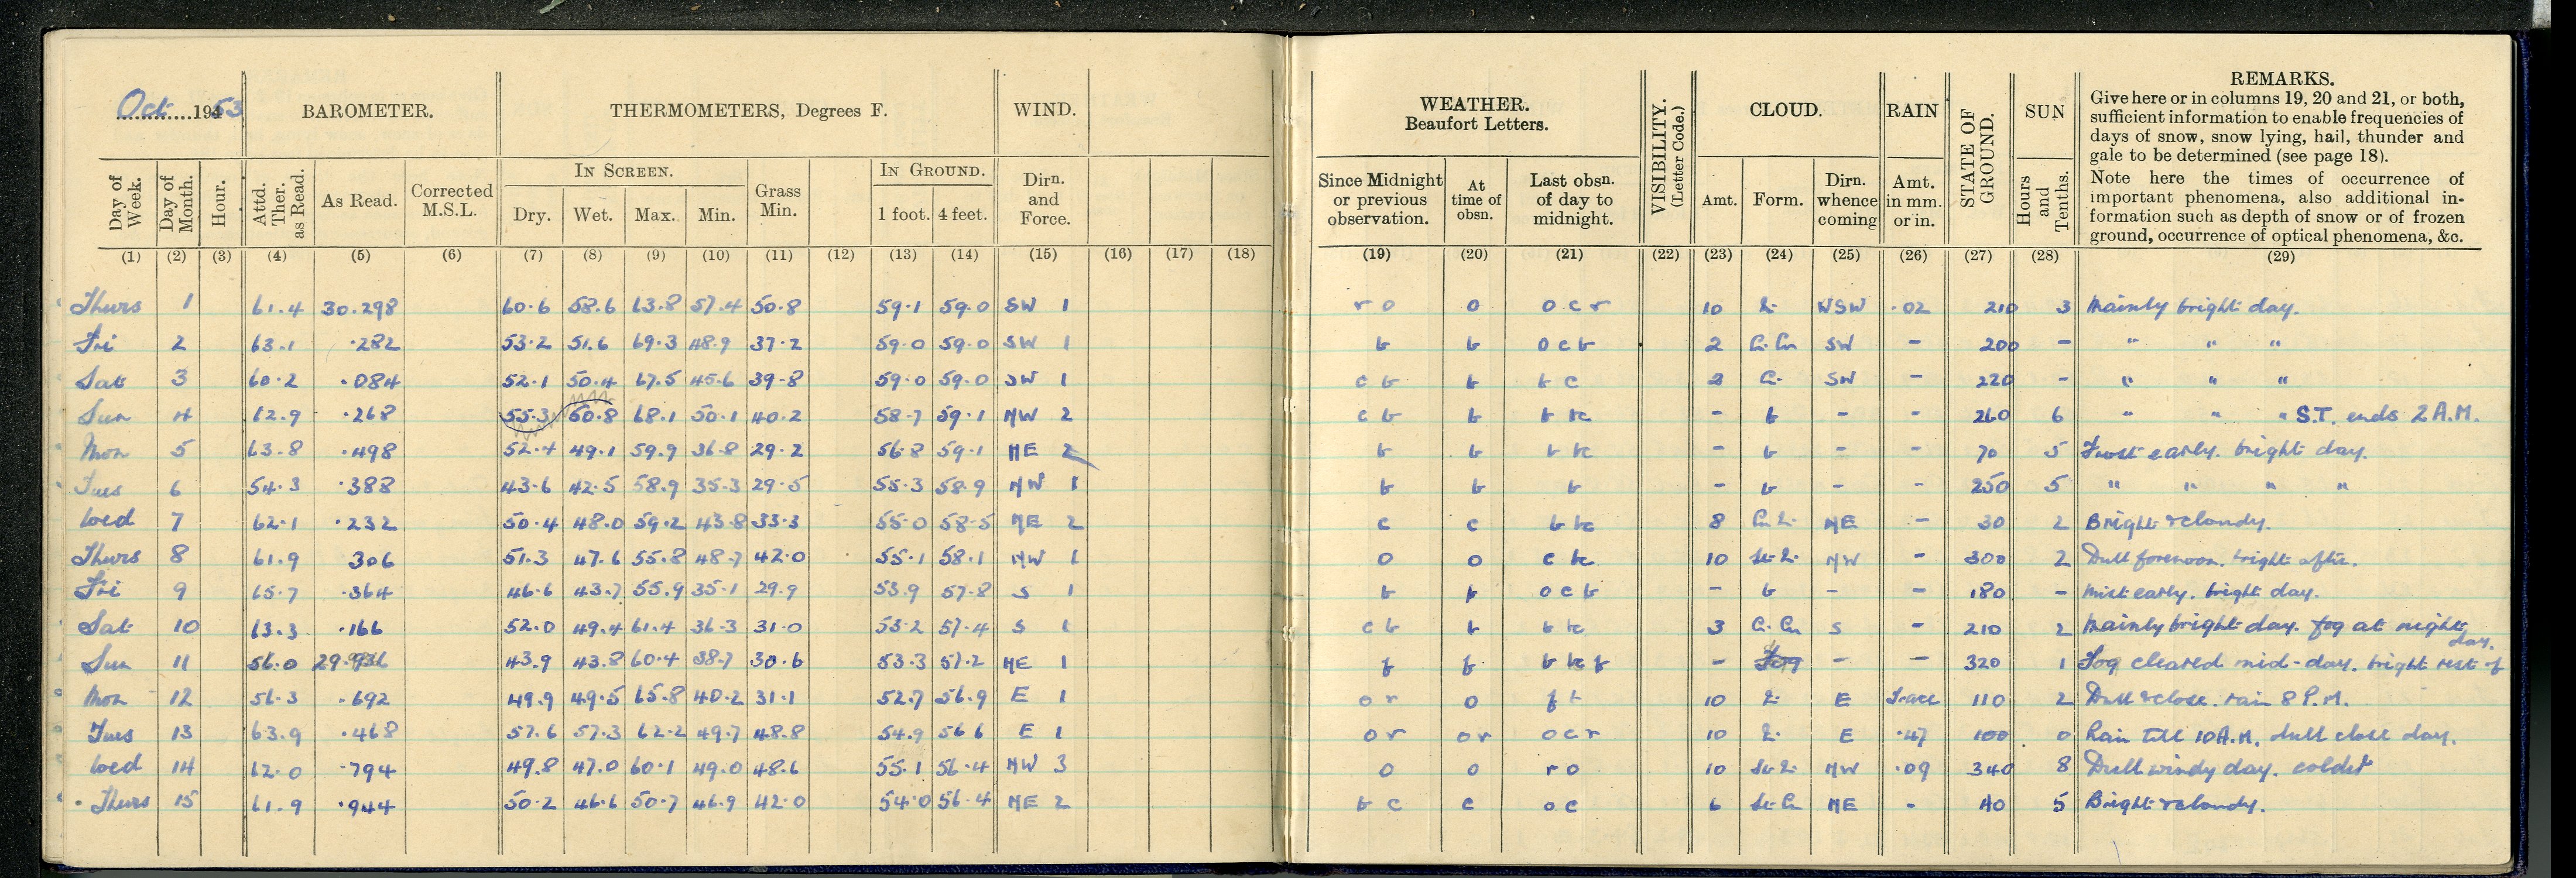 Oct 1953 BAROMETER. THERMOMETERS, Degrees F. WIND. WEATHER. Beaufort Letters. VISIBILITY. (Letter Code.) CLOUD. RAIN STATE OF GROUND. SUN REMARKS.
Give here or in columns 19, 20 and 21, or both,
sufficient information to enable frequencies of
days of snow, snow lying, hail, thunder and
gale to be determined (see page 18).
Note here the times of occurrence of
important phenomena, also additional in-
formation such as depth of snow or of frozen
ground, occurrence of optical phenomena, &c.
IN SCREEN. IN GROUND.
Day of Week. Day of Month. Hour. Attd. Ther. as Read. As Read. Corrected M.S.L. Dry. Wet. Max. Min. Grass Min. 1 foot. 4 feet. Dirn. and Force. Since Midnight or previous observation. At time of obsn. Last obsn. of day to midnight. Amt. Form. Dirn. whence coming Amt. in mm. or in. Hours and Tenths.
(1) (2) (3) (4) (5) (6) (7) (8) (9) (10) (11) (12) (13) (14) (15) (16) (17) (18) (19) (20) (21) (22) (23) (24) (25) (26) (27) (28) (29)
Thurs 1 61.4 30.298 60.6 58.6 63.8 57.4 50.8 59.1 59.0 SW 1 r o o o c r 10 WSW .02 210 3 Mainly bright day.
Fri 2 63.1 .282 53.2 51.6 69.3 48.9 37.2 59.0 59.0 SW 1 b b o c b 2 SW - 200 - " " "
Sat 3 60.2 .084 52.1 50.4 67.5 45.6 39.8 59.0 59.0 SW 1 c b b b c 2 SW - 220 - " " "
Sun 4 62.9 .268 55.3 50.8 68.1 50.1 40.2 58.7 59.1 NW 2 c b b b bc - b - - 260 6 " " " S.T. ends 2 A.M.
Mon 5 63.8 .498 52.4 49.1 59.9 36.8 29.2 56.8 59.1 NE 2 b b b bc - b - - 70 5 Frost early. bright day.
Tues 6 54.3 .388 43.6 42.5 58.9 35.3 29.5 55.3 58.9 NW 1 b b b - b - - 250 5 " " " "
Wed 7 62.1 .232 50.4 48.0 59.2 43.8 33.3 55.0 58.5 NE 2 c c b bc 8 NE - 30 2 Bright & cloudy.
Thurs 8 61.9 306 51.3 47.6 55.8 48.7 42.0 55.1 58.1 NW 1 o o c bc 10 NW - 300 2 Dull forenoon. bright after.
Fri 9 65.7 .364 46.6 43.7 55.9 35.1 29.9 53.9 57.8 S 1 b b o c b - b - - 180 - Mist early. bright day.
Sat 10 63.3 .166 52.0 49.4 61.4 36.3 31.0 53.2 57.4 S 1 c b b b bc 3 S - 210 2 Mainly bright day. fog at night
Sun 11 56.0 43.9 43.8 60.4 38.7 30.6 53.3 57.2 NE 1 f f b bc f - Fog - - 320 1 Fog cleared mid-day. bright rest of day.
Mon 12 56.3 .692 49.9 49.5 65.8 40.2 31.1 52.7 56.9 E 1 o r o 10 E Trace 110 2 Dull & close. rain 8 P.M.
Tues 13 63.9 .468 57.6 57.3 62.2 49.7 48.8 54.9 56 6 E 1 o r o r o c r 10 E .47 100 0 Rain till 10 A.M. dull close day.
Wed 14 62.0 .794 49.8 47.0 60.1 49.0 48.6 55.1 56.4 NW 3 o o r o 10 NW .09 340 8 Dull windy day. colder
Thurs 15 61.9 .944 50.2 46.6 50.7 46.9 42.0 54.0 56.4 NE 2 b c c o c 6 NE - 40 5 Bright & cloudy.